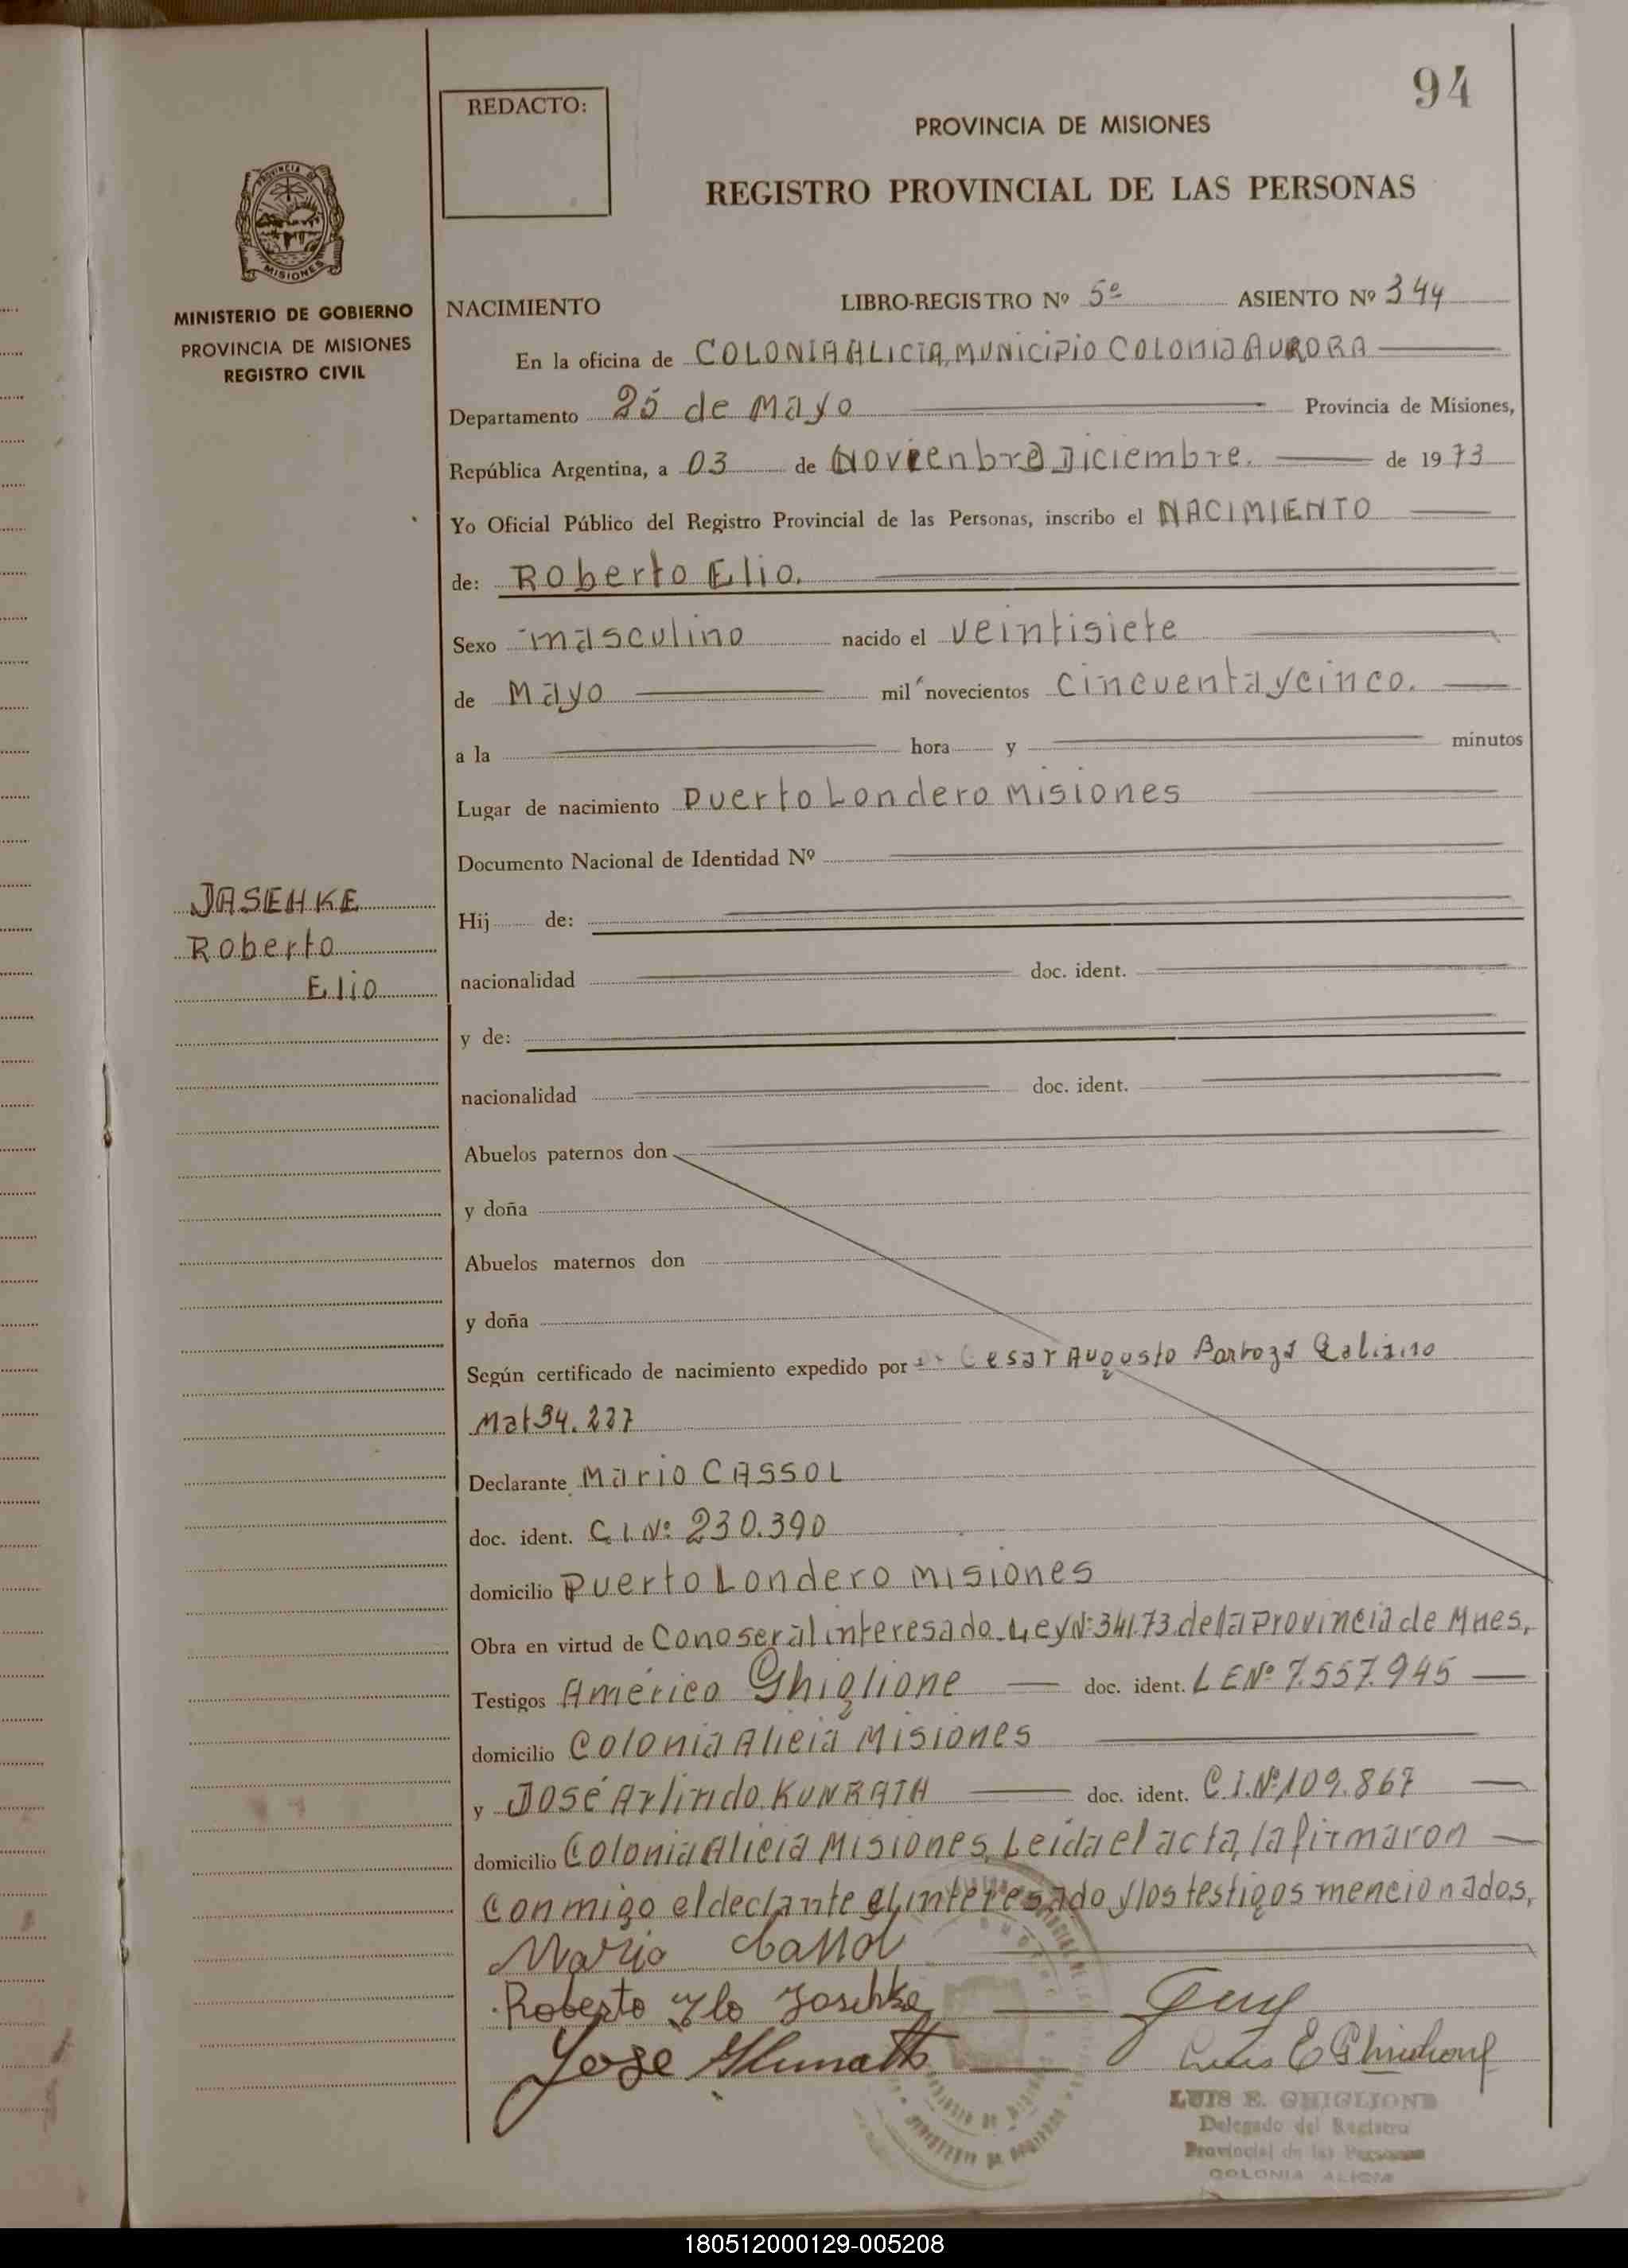 94
REDACTO:
PROVINCIA DE MISIONES
REGISTRO PROVINCIAL DE LAS PERSONAS
PROVINCIA DE
MISIONES
MINISTERIO DE GOBIERNO
PROVINCIA DE MISIONES
REGISTRO CIVIL
NACIMIENTO LIBRO-REGISTRO Nº 5º ASIENTO Nº 344
En la oficina de COLONIA ALICIA, MUNICIPIO COLONIA AURORA
Departamento 25 de Mayo Provincia de Misiones,
República Argentina, a 03 de (Novienbre) Diciembre. de 1973
Yo Oficial Público del Registro Provincial de las Personas, inscribo el NACIMIENTO
de: Roberto Elio.
Sexo masculino nacido el veintisiete
de Mayo mil novecientos cincuenta y cinco.
a la hora y minutos
Lugar de nacimiento Puerto Londero Misiones
Documento Nacional de Identidad Nº
JASEHKE
Roberto
Elio
Hij de:
nacionalidad doc. ident.
y de:
nacionalidad doc. ident.
Abuelos paternos don
y doña
Abuelos maternos don
y doña
Según certificado de nacimiento expedido por Cesar Augusto Barboza
Mat 34.227
Declarante Mario CASSOL
doc. ident. C.I. Nº 230.390
domicilio Puerto Londero Misiones
Obra en virtud de Conoser al interesado. Ley Nº 341.73. de la Provincia de Mnes,
Testigos Américo Ghiglione doc. ident. L E Nº 7.557.945
domicilio Colonia Alicia Misiones
y José Arlindo KUNRATH doc. ident. C.I. Nº 109.867
domicilio Colonia Alicia Misiones, Leída el acta, la firmaron
conmigo el declante el interesado y los testigos mencionados,
Mario Cassol
Roberto Ilo Jaschke
José
Luis E Ghiglione
LUIS E. GHIGLIONE
Delegado del Registro
Provincial de las Personas
COLONIA ALICIA
180512000129-005208